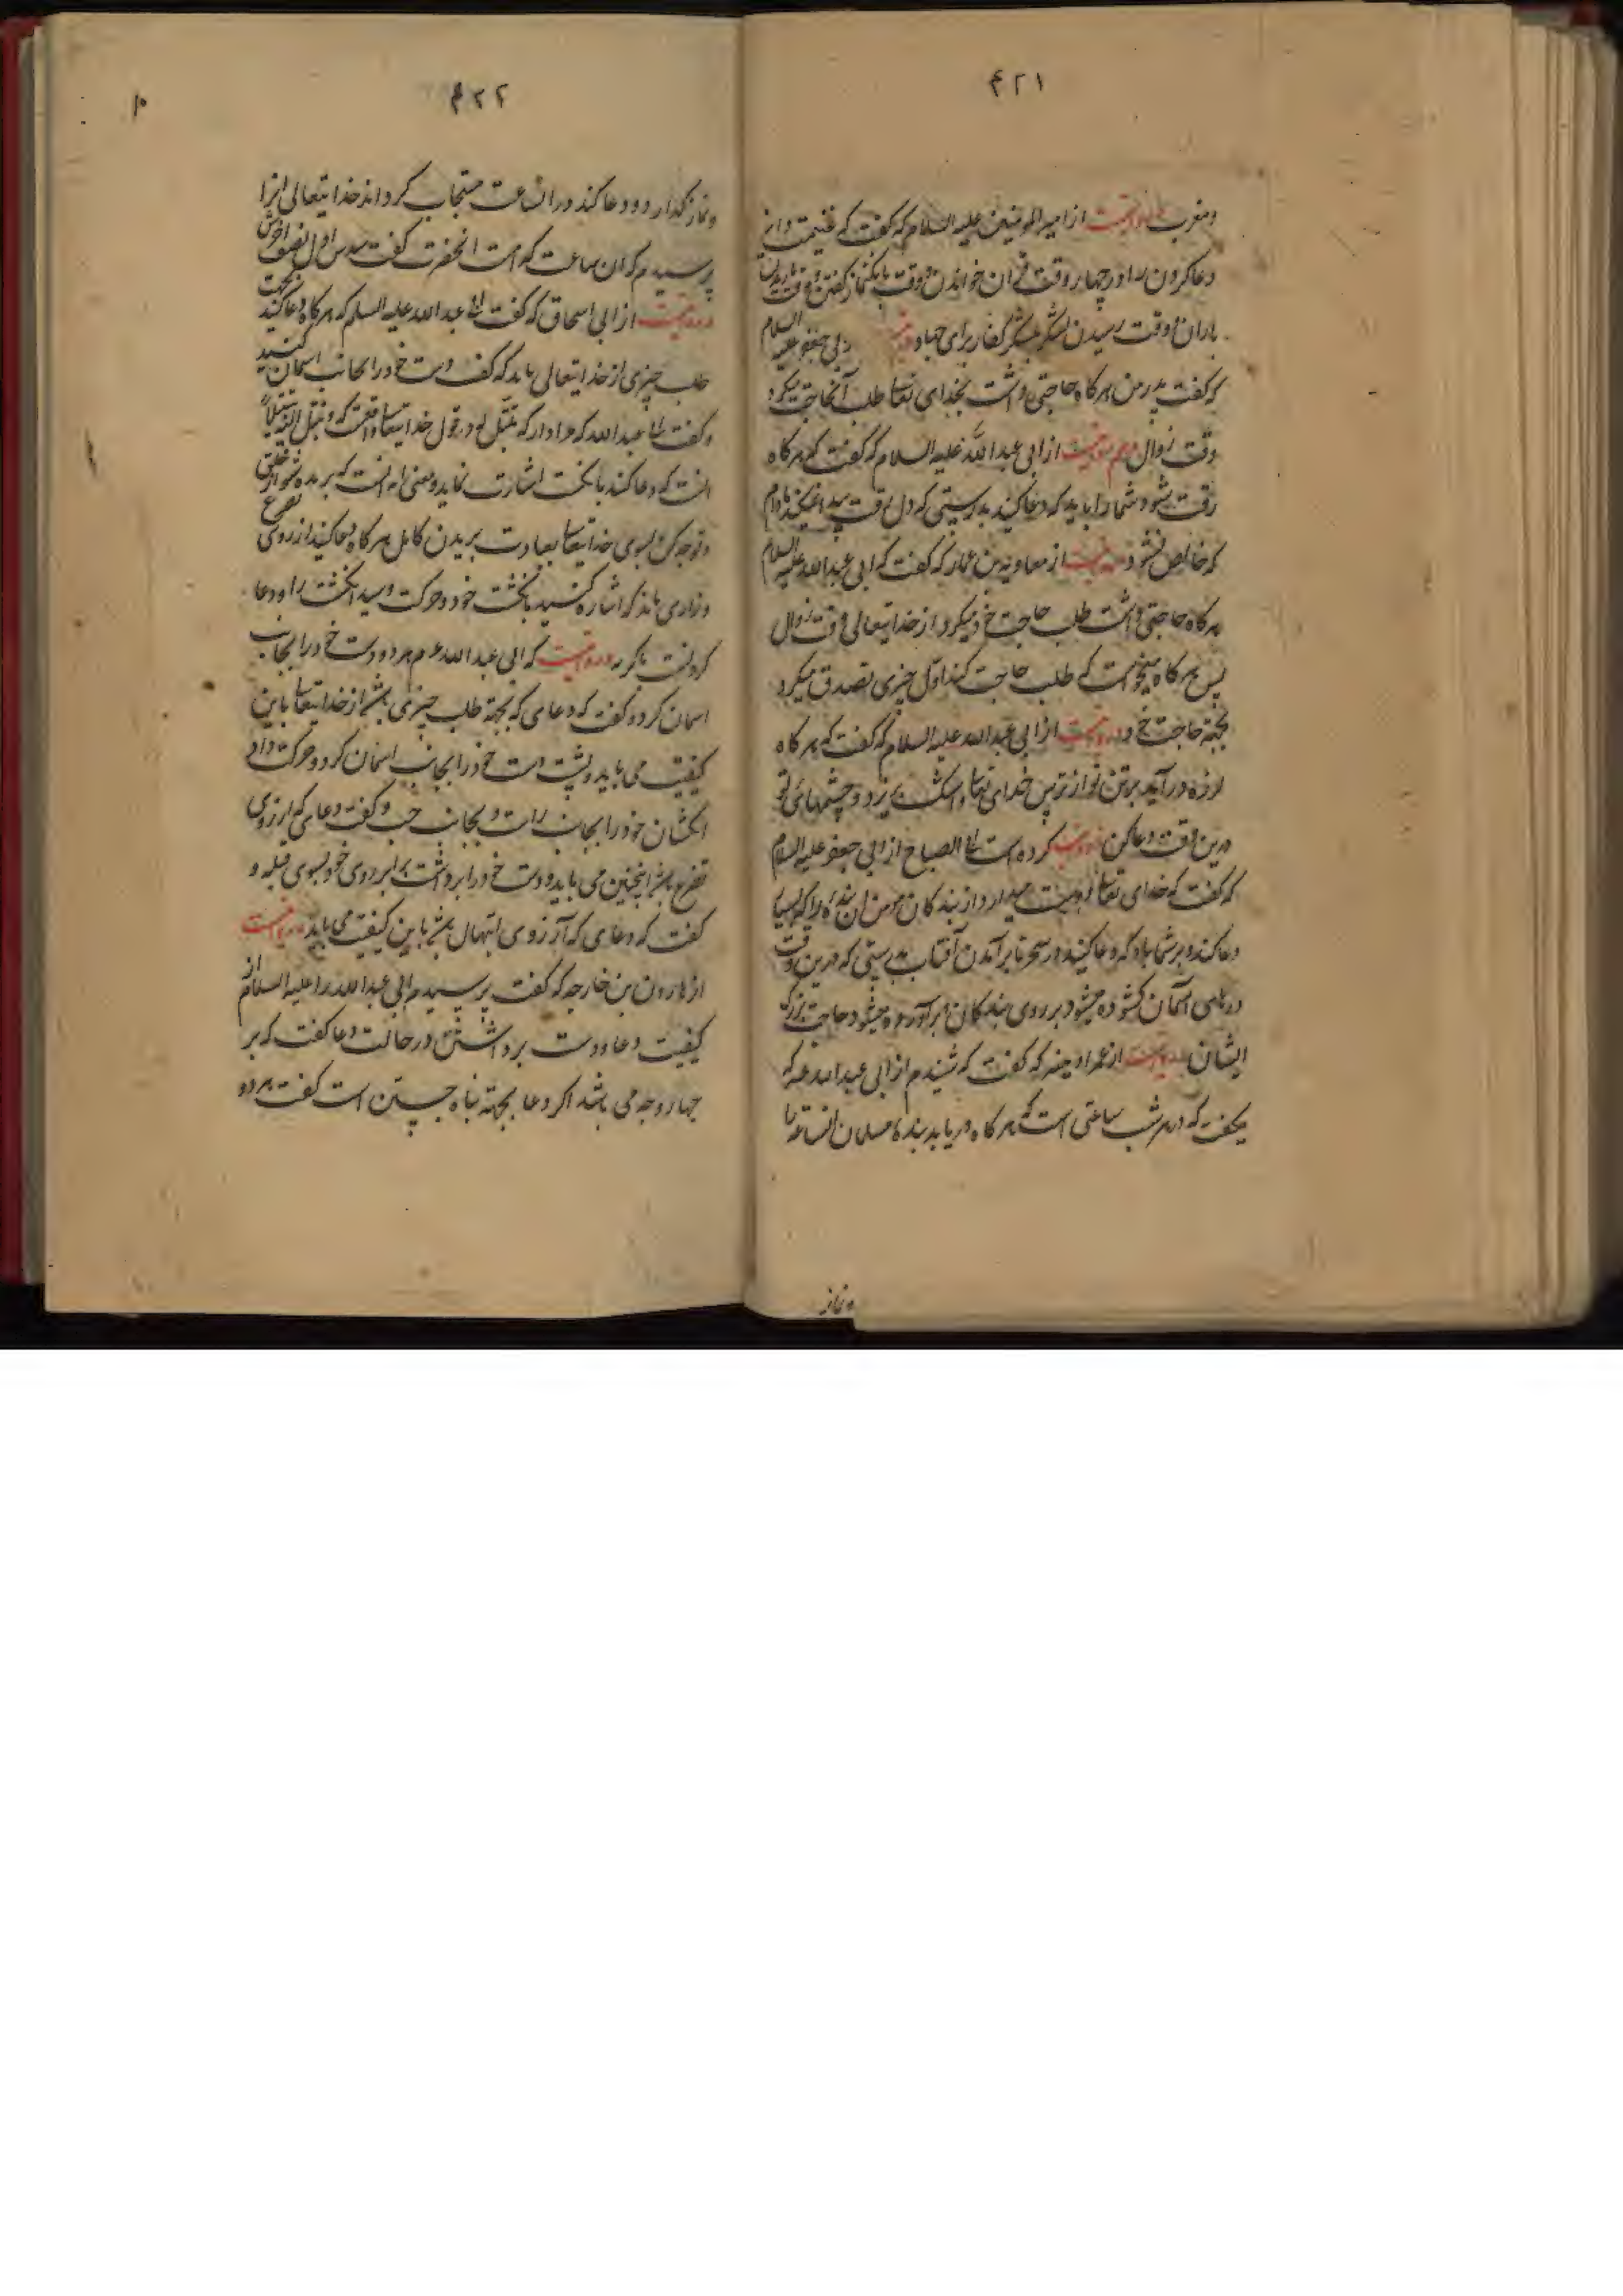 ۴۲۱
و مغرب از امیر المومنین علیه السلام که گفت که غنیمت دانید
دعا کردن را در چهار وقت قرآن خواندن و وقت بانک نماز گفتن و وقت باریدن
باران و وقت رسیدن لشکر بلشکر کفار برای جهاد ابی جعفر علیه السلام
که گفت پدر من هرکاه حاجتی داشت بخدای تعالی طلب آنحاجت میکرد
وقت زوال از ابی عبد الله علیه السلام که گفت که هرکاه
رقت بشود شما را باید که دعا کنید بدرستی که دل رقت پیدا نمیکند مادام
که خالص نشود از معاویه بن عمار که گفت که ابی عبد الله علیه السلام
هرکاه حاجتی داشت طلب حاجت خود میکرد از خدایتعالی وقت زوال
پس هرکاه میخواست که طلب حاجت کند اول چیزی تصدق میکرد
بجهة حاجت خود در روایتست از ابی عبد الله علیه السلام که گفت که هرکاه
لرزه در آید بر تن تو از ترس خدای تعالی و اشک بریزد و چشمهای تو
درین وقت دعا کن کرده است ابی الصباح از ابی جعفر علیه السلام
که گفت که خدای تعالی دوست میدارد از بندکان مومن آن بنده را که بسیار
دعا کند و بر شما باد که دعا کنید در سحر تا برآمدن آفتاب بدرستی که درین وقت
درهای آسمان کشوده میشود بر روی بندکان و برآورده میشود حاجت بزرک
ایشان از عمر اذینه که گفت که شنیدم از ابی عبد الله که
میگفت که در هر شب ساعتی است که هرکاه دریابد بنده مسلمان آنساعترا
و نماز
۴۲۲
و نماز کذارد و دعا کند در انساعت مستجاب کرداند خدایتعالی انرا
پرسیدم که ان ساعت کدام است انحضرت گفت سدس اول از نصف آخرش
در روایتست از ابی اسحاق که گفت ابی عبد الله علیه السلم که هرکاه دعا کنید بجهت
طلب چیزی از خدایتعالی باید که کف دست خود را بجانب اسمان کنید
و گفت ابی عبد الله که مراد از که تبتل که در قول خدایتعالی واقعست که و تبتل الیه تبتیلا
انست که دعا کند بانکشت اشارت نماید و معنی ایه انست که بریده شو از خلق
و توجه کن بسوی خدایتعالی بعبادت بریدن کامل هرکاه دعا کنید از روی تضرع
و زاری باید که اشاره کنید بانکشت خود و حرکت دهید انکشت را و دعا
که ابی عبد الله هر دو دست خود را بجانب
اسمان کرد و گفت که دعای که بجهة طلب چیزی باشد از خدایتعالی باین
کیفیت می باید و پشت دست خود را بجانب اسمان کرد و حرکت داد
انکشتان خود را بجانب راست و بجانب چپ و گفت دعای که از روی
تضرع باشد اینچنین می باید و دست خود را برداشت برابر روی خود بسوی قبله و
گفت که دعای که آز روی ابتهال باشد باین کیفیت می باید در روایتست
از هارون بن خارجه که گفت پرسیدم ابی عبد الله را علیه السلام از
کیفیت دعا و دست برداشتن در حالت دعا گفت که بر
چهار وجه می باشد اکر دعا بجهة پناه جستن است گفت هر دو